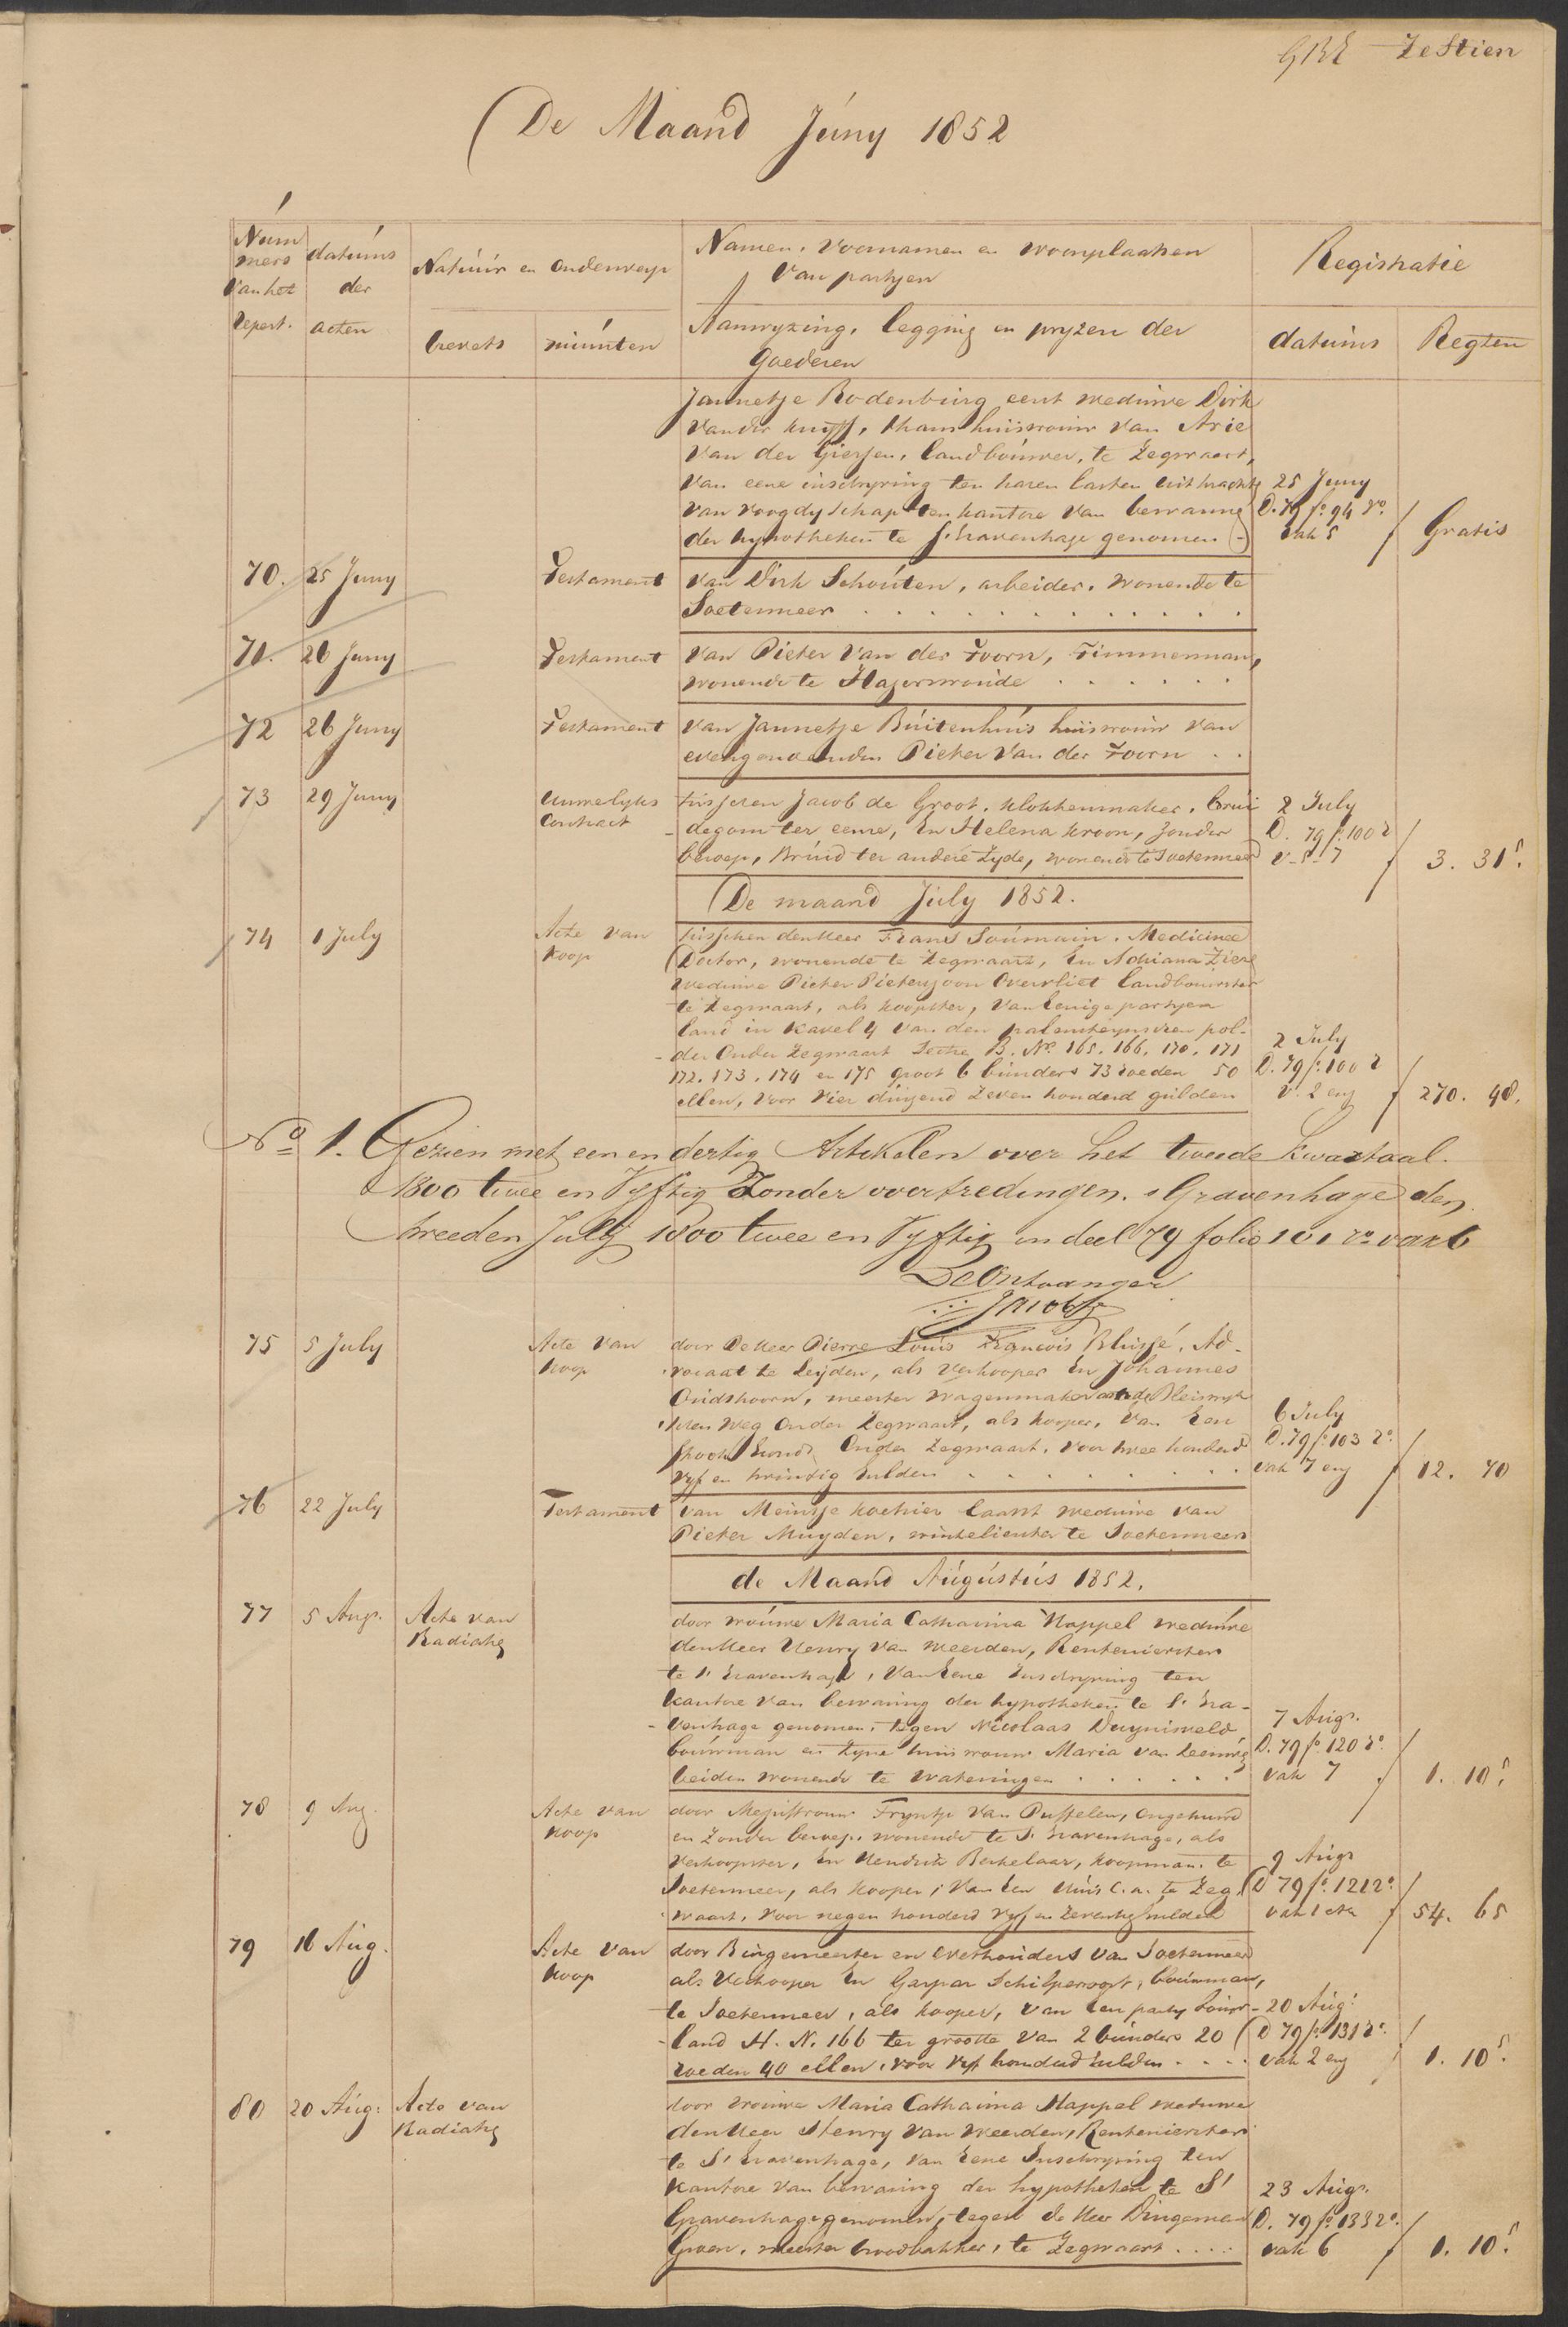 Zestien
De Maand Juny 1852
Num
mers
van het
Repert.
datums
der
acten
Natuur en Onderwerp
brevets
minuten
Namen, Voornamen en woonplaatsen
van partyen
Aanwyzing, legging en pryzen der
Goederen
Registratie
datums
Regten
Jannetje Rodenburg eerst weduwe Dirk
van der Kuyff, thans huisvrouw van Arie
van der Giessen, landbouwer, te Zegwaart,
van eene inschryving ten haren lasten uit kracht
van voogdyschap ten kantore van bewaring
der hypotheken te s'Gravenhage genomen
25 Juny
D. 79 fo. 94 ro.
vak 5
Gratis
70. 25 Juny Testament van Dirk Schouten, arbeider, wonende te
Soetermeer
71. 26 Juny Testament van Pieter van der Toorn, Timmerman,
wonende te Hazerswoude
72 26 Juny Testament van Jannetje Buitenhuis huisvrouw van
evengenoemden Pieter van der Toorn
73 29 Juny Huwelyks tusschen Jacob de Groot, klokkenmaker, brui
Contract degom ter eenre, En Helena Kroon, zonder
beroep, Bruid ter andere zyde, wonende te Soetermeer
2 July
D. 79 f. 100 r
v. 5-7
3. 31 5.
De maand July 1852.
74 1 July Acte van tusschen den Heer Frans Soumain, Medicinee
Koop Doctor, wonende te Zegwaart, En Adriana
weduwe Pieter Pieterszoon Overvliet landbouwster
te Zegwaart, als koopster, van Eenige partyen
land in kavel 4 van den palensteynschen pol-
der Onder Zegwaart Sectie B. No. 165. 166. 170. 171
172. 173. 174 en 175 groot 6 bunders 73 roeden 50
ellen, voor vier duizend zeven honderd gulden
2 July
D. 79 f. 100 r
v. 2 en
270. 48.
No 1. Gezien met een en dertig Artikelen over het tweede kwartaal
1800 twee en Vyftig Zonder overtredingen. s Gravenhage den
tweeden July 1800 twee en Vyftig in deel 79 folio 101 ro vak 6
De Ontvanger
75 5 July Acte van door De Heer Pierre Louis François Blussé, Ad-
Koop vocaat te Leyden, als Verkooper En Johannes
Oudshoorn, meester wagenmaker aan de Bleiswyk
schen weg Onder Zegwaart, als kooper, van Een
Onder Zegwaart, voor twee honderd
vyf en twintig Gulden
6 July
D. 79 f. 103 ro.
vak 7 en
12. 70
76 22 July Testament van Meinsje laatst weduwe van
Pieter Muyden, winkelierster te Soetermeer
de Maand Augustus 1852.
77 5 Augs. Acte van door vrouwe Maria Catharina Happel weduwe
Radiatie den Heer Henry van Weerden, Rentenierster
te s' Gravenhage, van Eene Inschryving ten
kantore van bewaring der hypotheken te s' Gra-
venhage genomen, tegen Nicolaas Duynisveld
bouwman en zyne huisvrouw Maria van Leeuwen
beiden wonende te Wateringen
7 Augs.
D. 79 fo. 120 ro.
vak 7
1. 10 5.
78 9 Aug. Acte van door Mejuffrouw Fryntje van Puffelen, ongehuwd
Koop en zonder beroep, wonende te s Gravenhage, als
Verkoopster, En Hendrik Berkelaar, koopman te
Soetermeer, als kooper, van Een Huis c.a. te Zeg
waart, voor negen honderd vyf en zeventig Gulden
9 Augs
D 79 fo. 121 ro.
vak 1
54. 65
79 16 Aug. Acte van door Burgemeester en Wethouders van Soetermeer
Koop als Verkooper En Gaspar Schilperoort, bouwman,
te Soetermeer, als kooper, van Een party bouw-
land H. N. 166 ter grootte van 2 bunders 20
roeden 40 ellen, voor vyf honderd Gulden
20 Aug.
D 79 fo. 131 ro.
vak 2 en
1. 10 5.
80 20 Aug. Acte van door vrouwe Maria Catharina Happel weduwe
Radiatie den Heer Henry van Weerden, Rentenierster
te s' Gravenhage, van Eene Inschryving ten
kantore van bewaring der hypotheken te s'
Gravenhage genomen, tegen de Heer Dingeman
Groen, meester broodbakker, te Zegwaart
23 Augs.
D. 79 fo. 133 ro.
vak 6
1. 10 5.